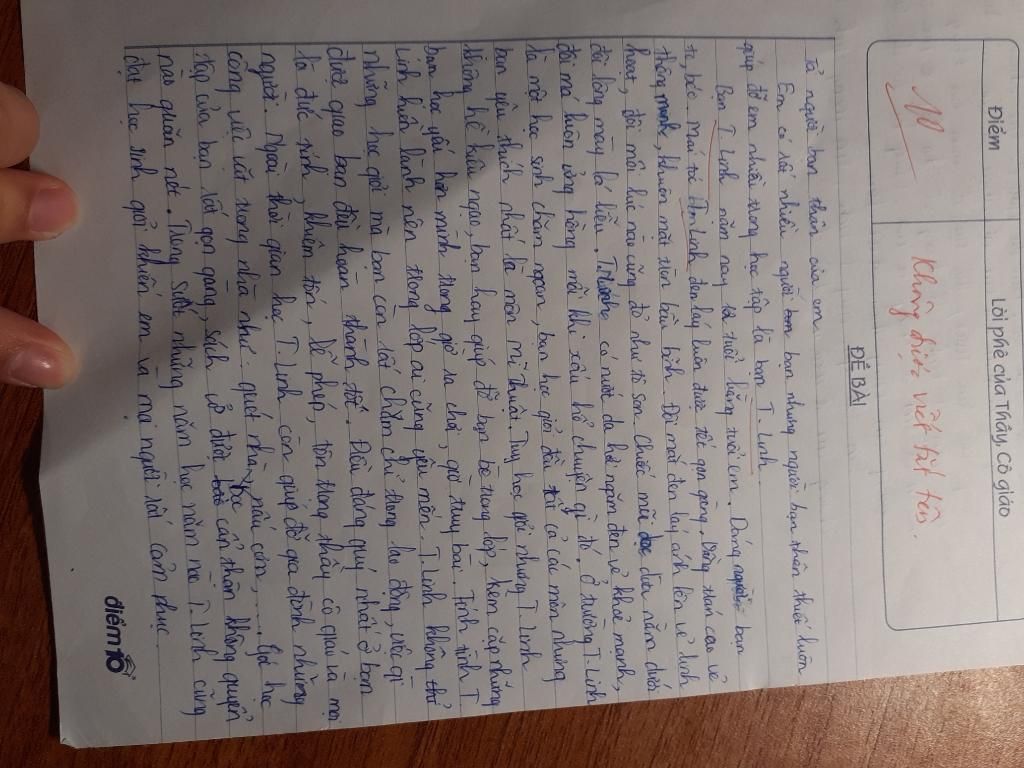 Điểm
Lời phê của Thầy Cô giáo
10
Không được viết tắt tên.
ĐỀ BÀI
Tả người bạn thân của em.
Em có rất nhiều người bạn nhưng người bạn thân thiết luôn
giúp đỡ em nhiều trong học tập là bạn T. Linh.
Bạn T. Linh năm nay tuổi bằng tuổi em. Dáng người bạn
Mái tóc đen láy luôn được tết gọn gàng. Vầng trán cao vẻ
thông minh, khuôn mặt tròn bầu bĩnh. Đôi mắt đen láy ánh lên vẻ linh
hoạt, đôi môi lúc nào cũng đỏ như tô son. Chiếc mũi dọc dừa nằm dưới
đôi lông mày lá liễu. T. Linh có nước da hơi ngăm đen vẻ khoẻ mạnh,
đôi má luôn ửng hồng mỗi khi xấu hổ chuyện gì đó. Ở trường T. Linh
là một học sinh chăm ngoan, bạn học giỏi đều tất cả các môn nhưng
bạn yêu thích nhất là môn mĩ thuật. Tuy học giỏi nhưng T. Linh
không hề kiêu ngạo, bạn hay giúp đỡ bạn bè trong lớp, kèm cặp những
bạn học yếu hơn mình trong giờ ra chơi, giờ truy bài. Tính tình T.
Linh hiền lành nên trong lớp ai cũng yêu mến. T. Linh không chỉ
những học giỏi mà bạn còn rất chăm chỉ trong lao động, việc gì
được giao bạn đều hoàn thành tốt. Điều đáng quý nhất ở bạn
là đức tính khiêm tốn, lễ phép, tôn trọng thầy cô giáo và mọi
người. Ngoài thời gian học T. Linh còn giúp đỡ gia đình những
công việc vặt trong nhà như: quét nhà, nấu cơm,.... Góc học
tập của bạn rất gọn gàng, sách vở được bọc cẩn thận không quyển
nào quăn nét. Trong suốt những năm học năm nào T. Linh cũng
đạt học sinh giỏi khiến em và mọi người rất cảm phục.
điểm10